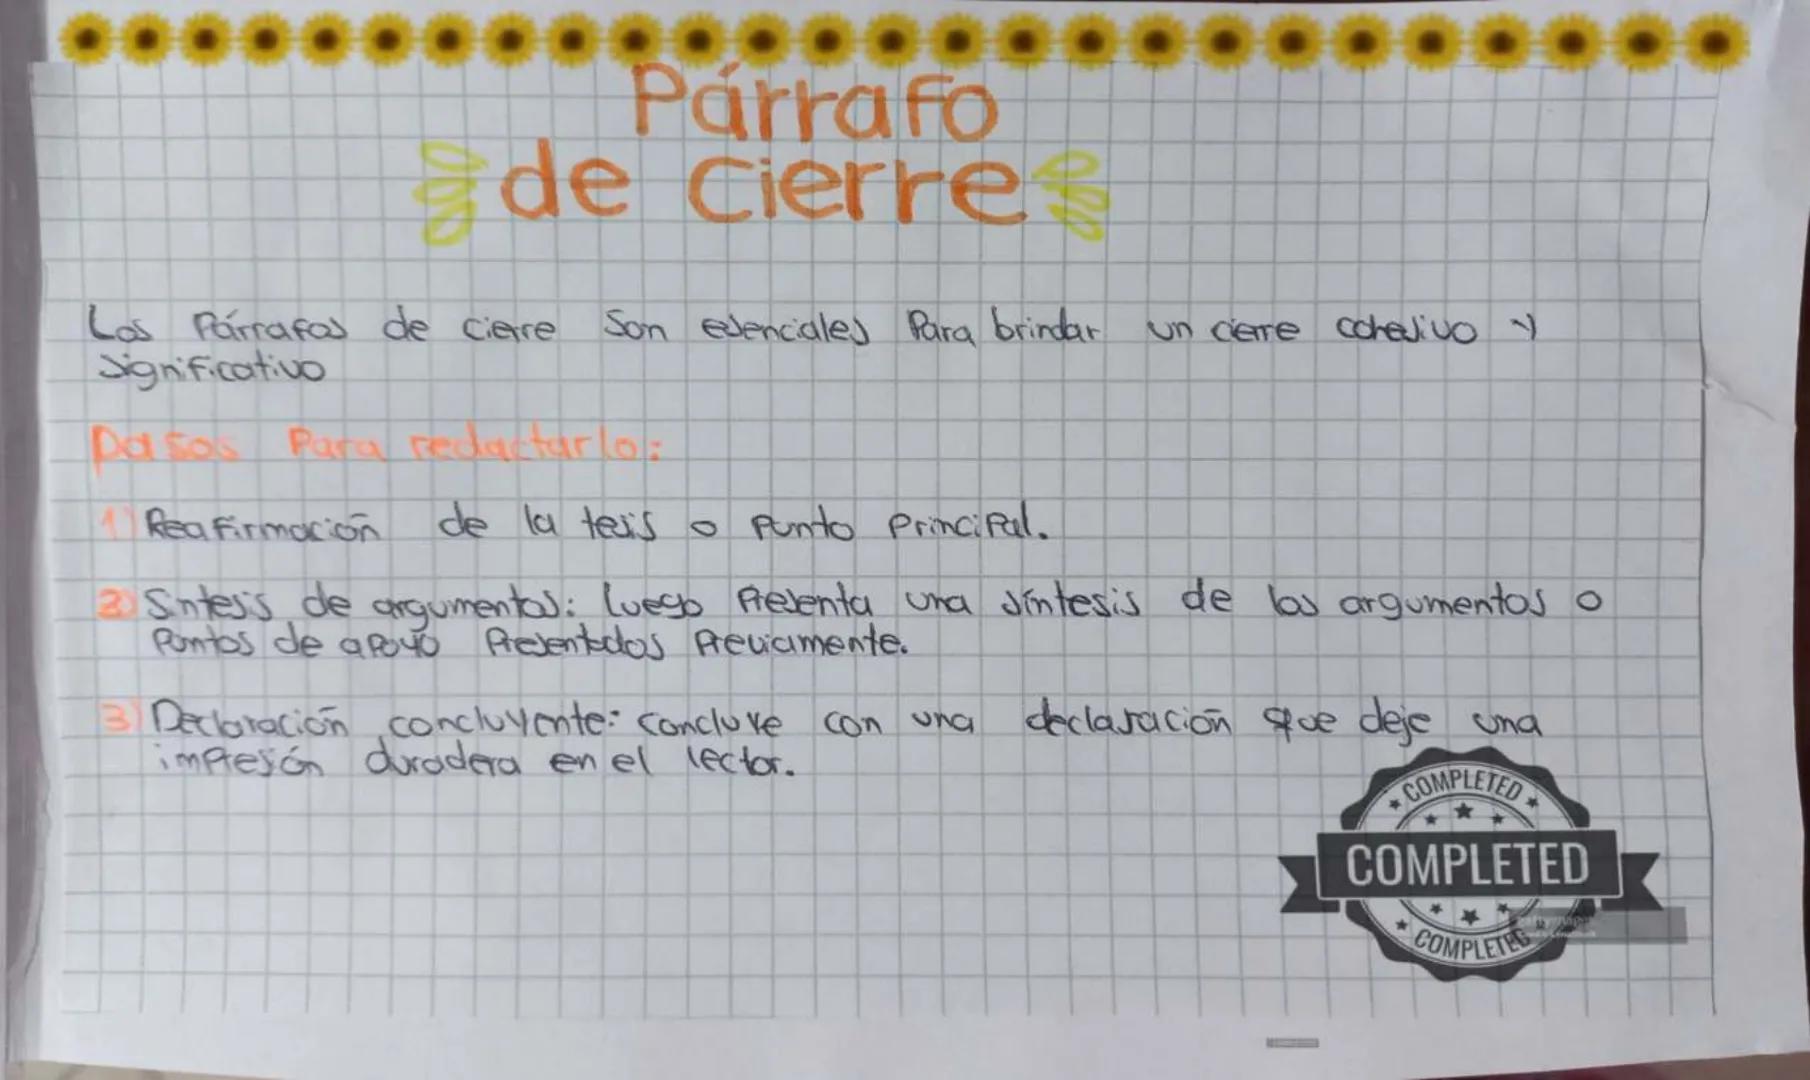 Párrafo
de cierre
Los Párrafos de cierre son esenciales Para brindar un cierre cohesivo y
significativo
Pasos Para redactarlo:
1) Reafirmación de la tesis o Punto Principal.
2) Síntesis de argumentos: luego Presenta una síntesis de los argumentos o
Puntos de apoyo Presentados Previamente.
3) Declaración concluyente: concluye con una declaración que deje una
impresión duradera en el lector.
COMPLETED
COMPLETED
COMPLETED